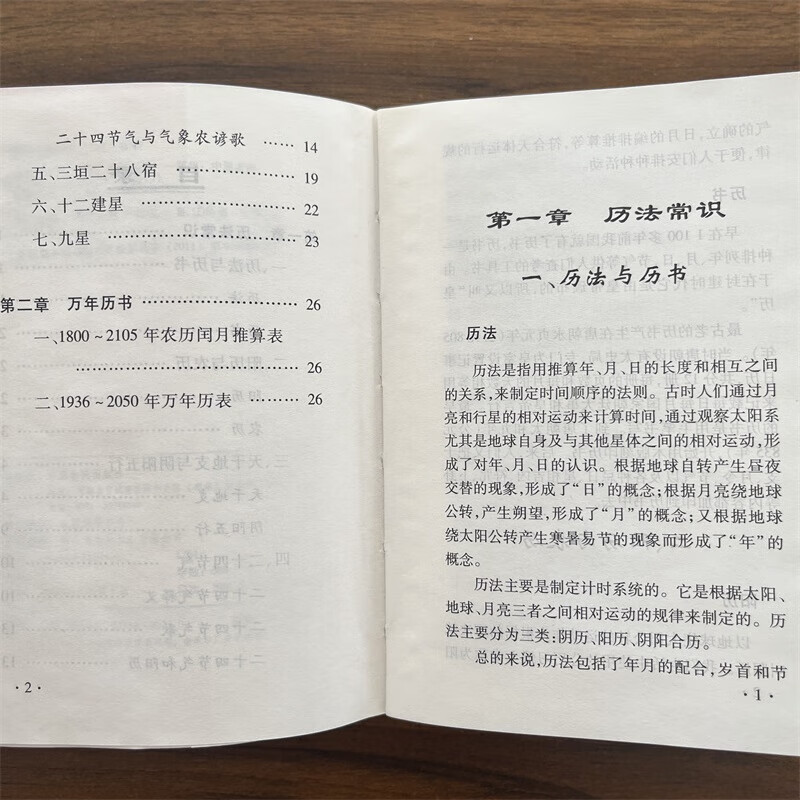 二十四节气与气象农谚歌 …… 14
五、三垣二十八宿 ……………… 19
六、十二建星 …………………… 22
七、九星 ………………………… 23
第二章 万年历书 ……………… 26
一、1800～2105年农历闰月推算表
……………………………… 26
二、1936～2050年万年历表 ……… 26
·2·
第一章 历法常识
一、历法与历书
历法
历法是指用推算年、月、日的长度和相互之间
的关系,来制定时间顺序的法则。古时人们通过月
亮和行星的相对运动来计算时间,通过观察太阳系
尤其是地球自身及与其他星体之间的相对运动,形
成了对年、月、日的认识。根据地球自转产生昼夜
交替的现象,形成了“日”的概念;根据月亮绕地球
公转,产生朔望,形成了“月”的概念;又根据地球
绕太阳公转产生寒暑易节的现象而形成了“年”的
概念。
历法主要是制定计时系统的。它是根据太阳、
地球、月亮三者之间相对运动的规律来制定的。历
法主要分为三类:阴历、阳历、阴阳合历。
总的来说,历法包括了年月的配合,岁首和节
·1·